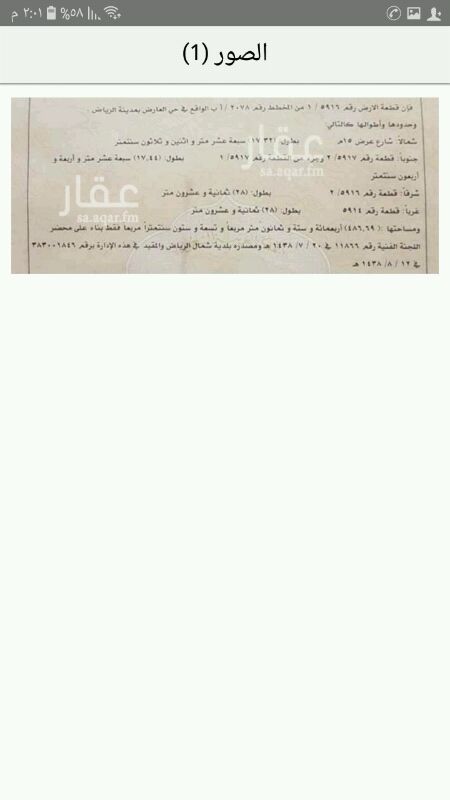 ٢:٠١ م ٥٨%
الصور (1)
فإن قطعة الارض رقم ٥٩١٦ / ١ من المخطط رقم ٢٠٧٨ / أ ب الواقع في حي العارض بمدينة الرياض .
وحدودها وأطوالها كالتالي:
شمالا: شارع عرض ١٥م بطول: (١٧,٣٢) سبعة عشر متر و اثنين و ثلاثون سنتمتر
جنوبا: قطعة رقم ٥٩١٧/ ٢ وجزء من القطعة رقم ٥٩١٧/ ١ بطول: (١٧,٤٤) سبعة عشر متر و أربعة و
أربعون سنتمتر
شرقا: قطعة رقم ٥٩١٦/ ٢ بطول: (٢٨) ثمانية و عشرون متر
غربا: قطعة رقم ٥٩١٤ بطول: (٢٨) ثمانية و عشرون متر
ومساحتها :( ٤٨٦,٦٩) أربعمائة و ستة و ثمانون متر مربعا و تسعة و ستون سنتمتراً مربعا فقط بناء على محضر
اللجنة الفنية رقم ١١٨٦٦ في ٢٠ / ٧/ ١٤٣٨ هـ ومصدره بلدية شمال الرياض والمقيد في هذه الإدارة برقم ٣٨٣٠٠١٨٤٦
في ١٢ / ٨/ ١٤٣٨ هـ
عقار
sa.aqar.fm
عقار
sa.aqar.fm